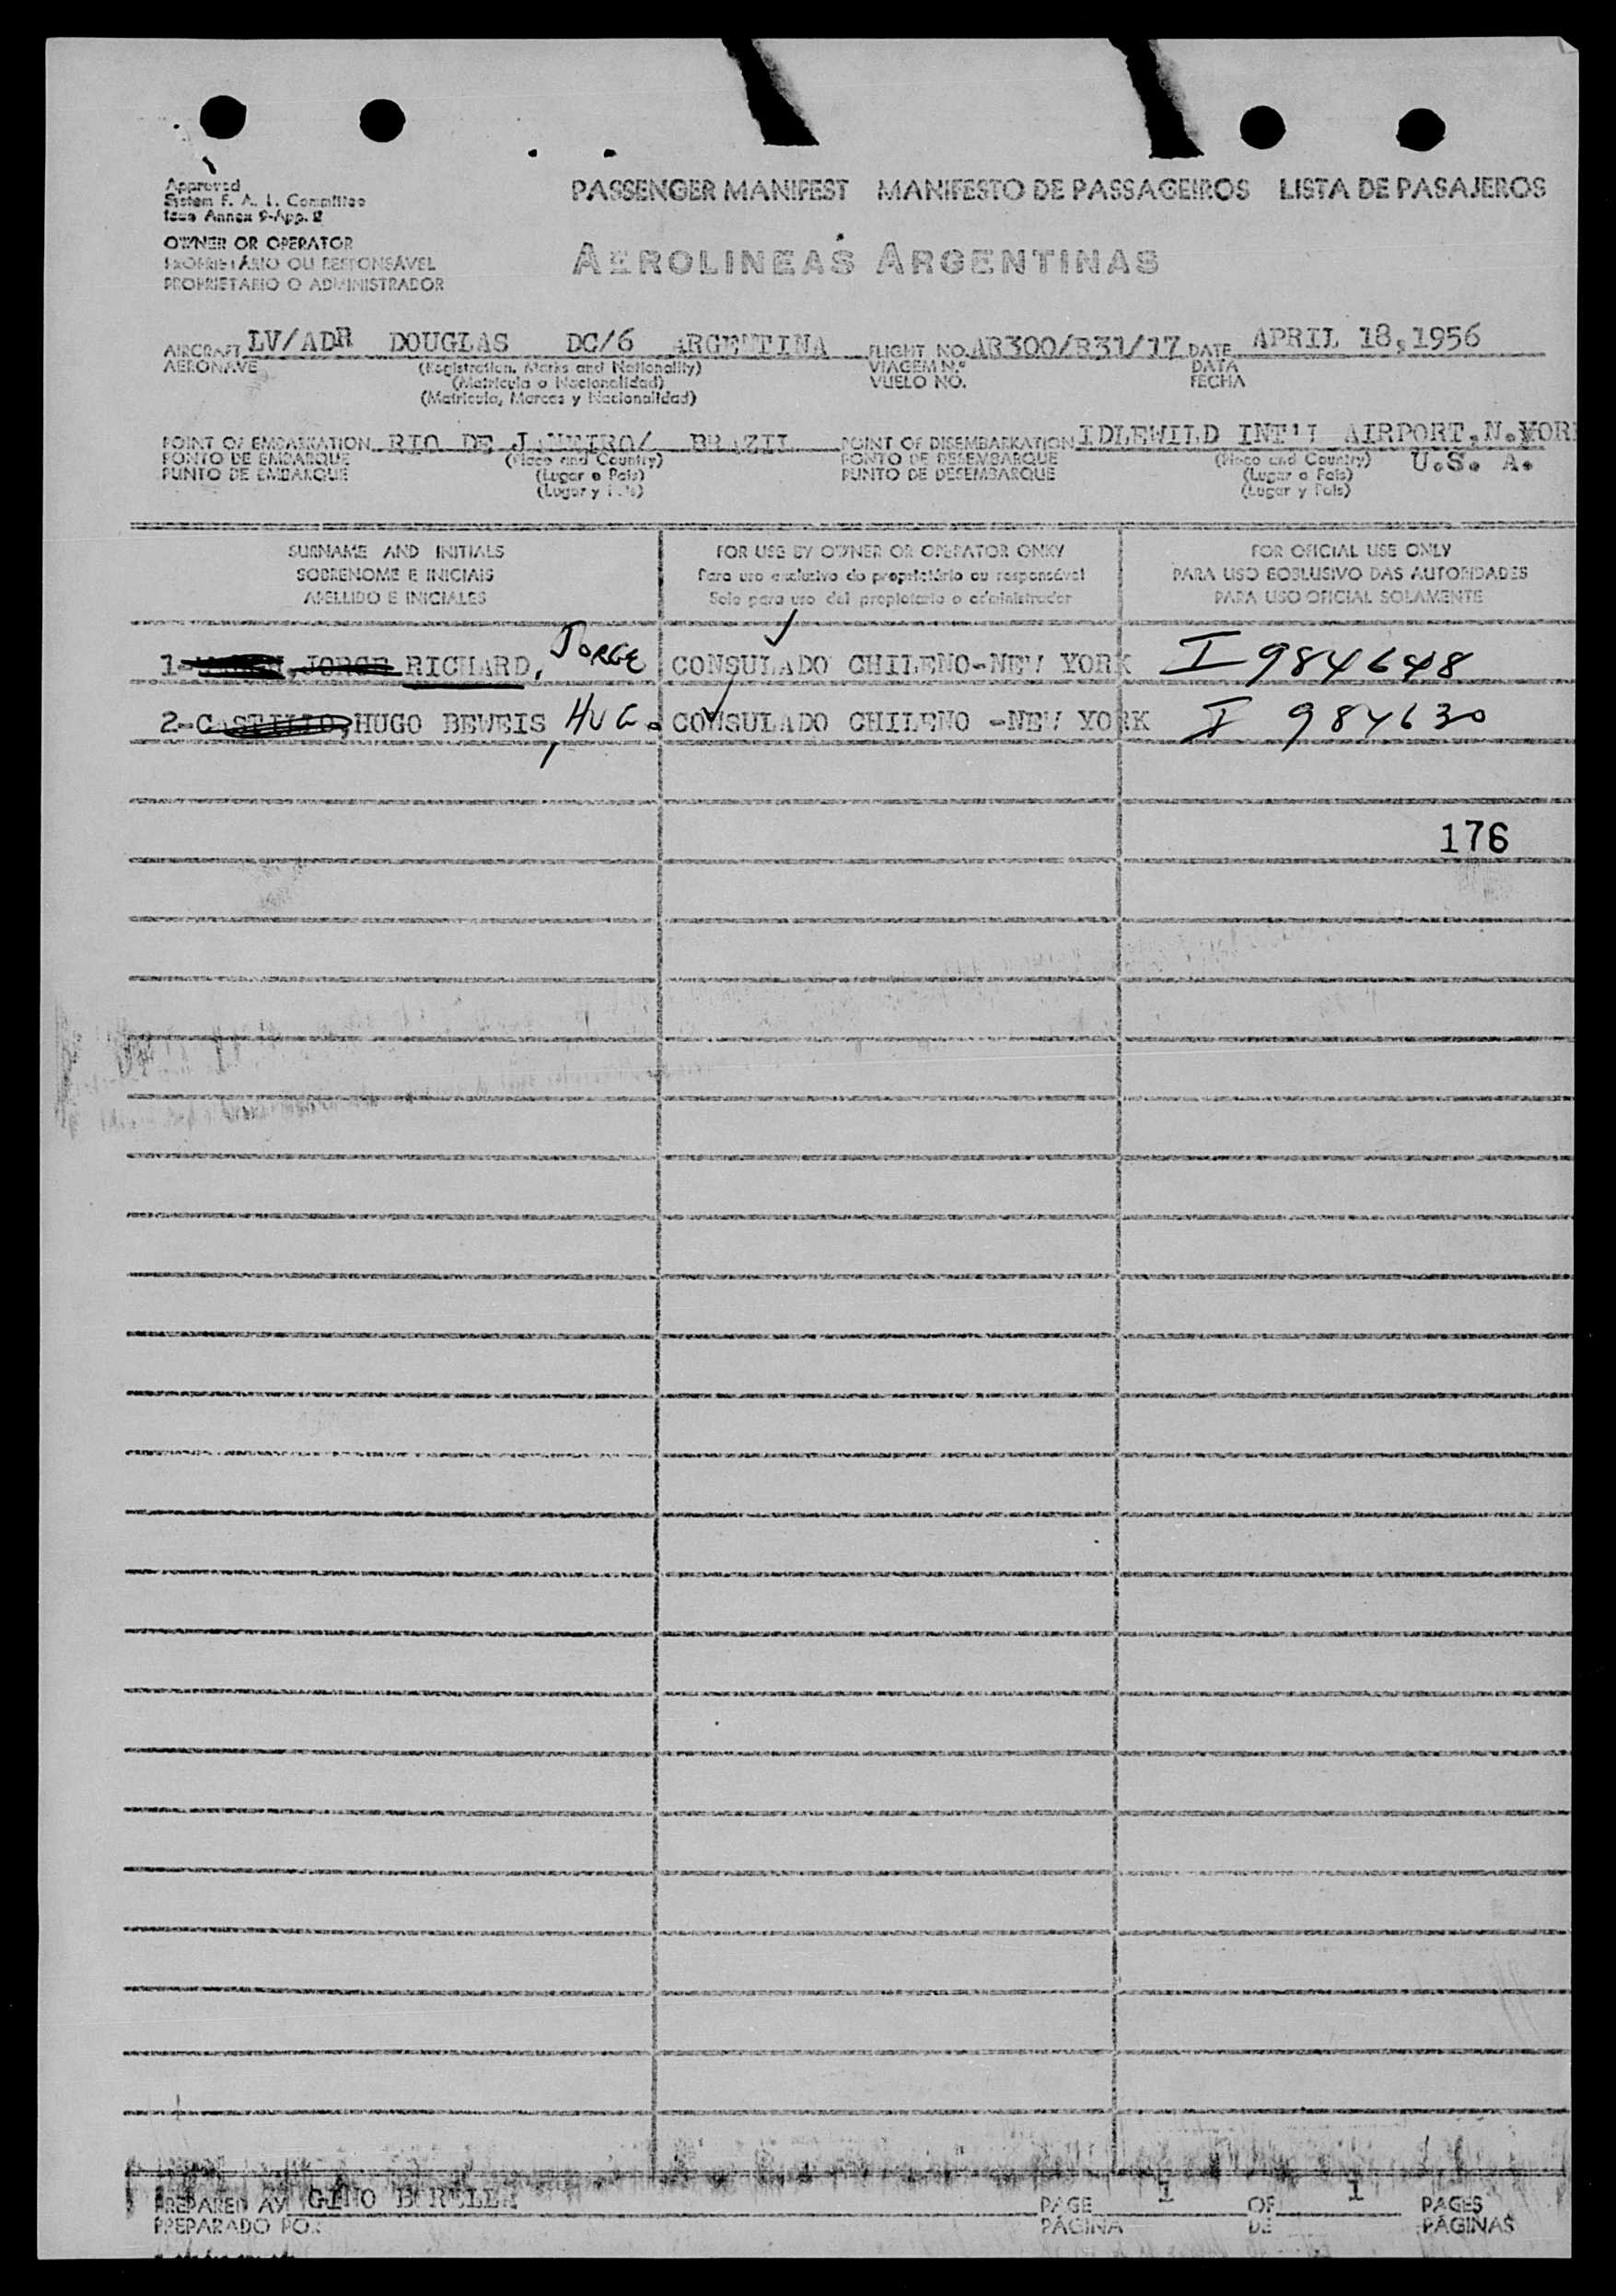 Approved
System F. A. L. Committee
Icao Annex 9-App. 2
PASSENGER MANIFEST MANIFESTO DE PASSAGEIROS LISTA DE PASAJEROS
OWNER OR OPERATOR
PROPRIETÁRIO OU RESPONSÁVEL
PROPRIETARIO O ADMINISTRADOR
AEROLINEAS ARGENTINAS
AIRCRAFT LV/ADR DOUGLAS DC/6 ARGENTINA FLIGHT NO. AR300/B31/17 DATE APRIL 18,1956
AERONAVE (Registration, Marks and Nationality) VIAGEM N.º DATA
(Matricula o Nacionalidad) VUELO NO. FECHA
(Matricula, Marcas y Nacionalidad)
POINT OF EMBARKATION RIO DE JANEIRO/ BRAZIL POINT OF DISEMBARKATION IDLEWILD INT'L AIRPORT,N.YOR
PONTO DE EMBARQUE (Place and Country) PONTO DE DESEMBARQUE (Place and Country) U.S. A.
PUNTO DE EMBARQUE (Lugar o Pais) PUNTO DE DESEMBARQUE (Lugar o Pais)
(Lugar y Pais) (Lugar y Pais)
SURNAME AND INITIALS FOR USE BY OWNER OR OPERATOR ONKY FOR OFICIAL USE ONLY
SOBRENOME E INICIAIS Para uso exclusivo do proprietário ou responsável PARA USO EOSLUSIVO DAS AUTORIDADES
APELLIDO E INICIALES Solo para uso del propietario o administrador PARA USO OFICIAL SOLAMENTE
1- JORGE RICHARD, JORGE CONSULADO CHILENO-NEW YORK I 984648
2-CASTILLO,HUGO BEWEIS, HUG. CONSULADO CHILENO -NEW YORK I 984630
176
PREPARED AY GINO PAGE 1 OF 1 PAGES
PREPARADO PO.: PÁGINA DE PÁGINAS